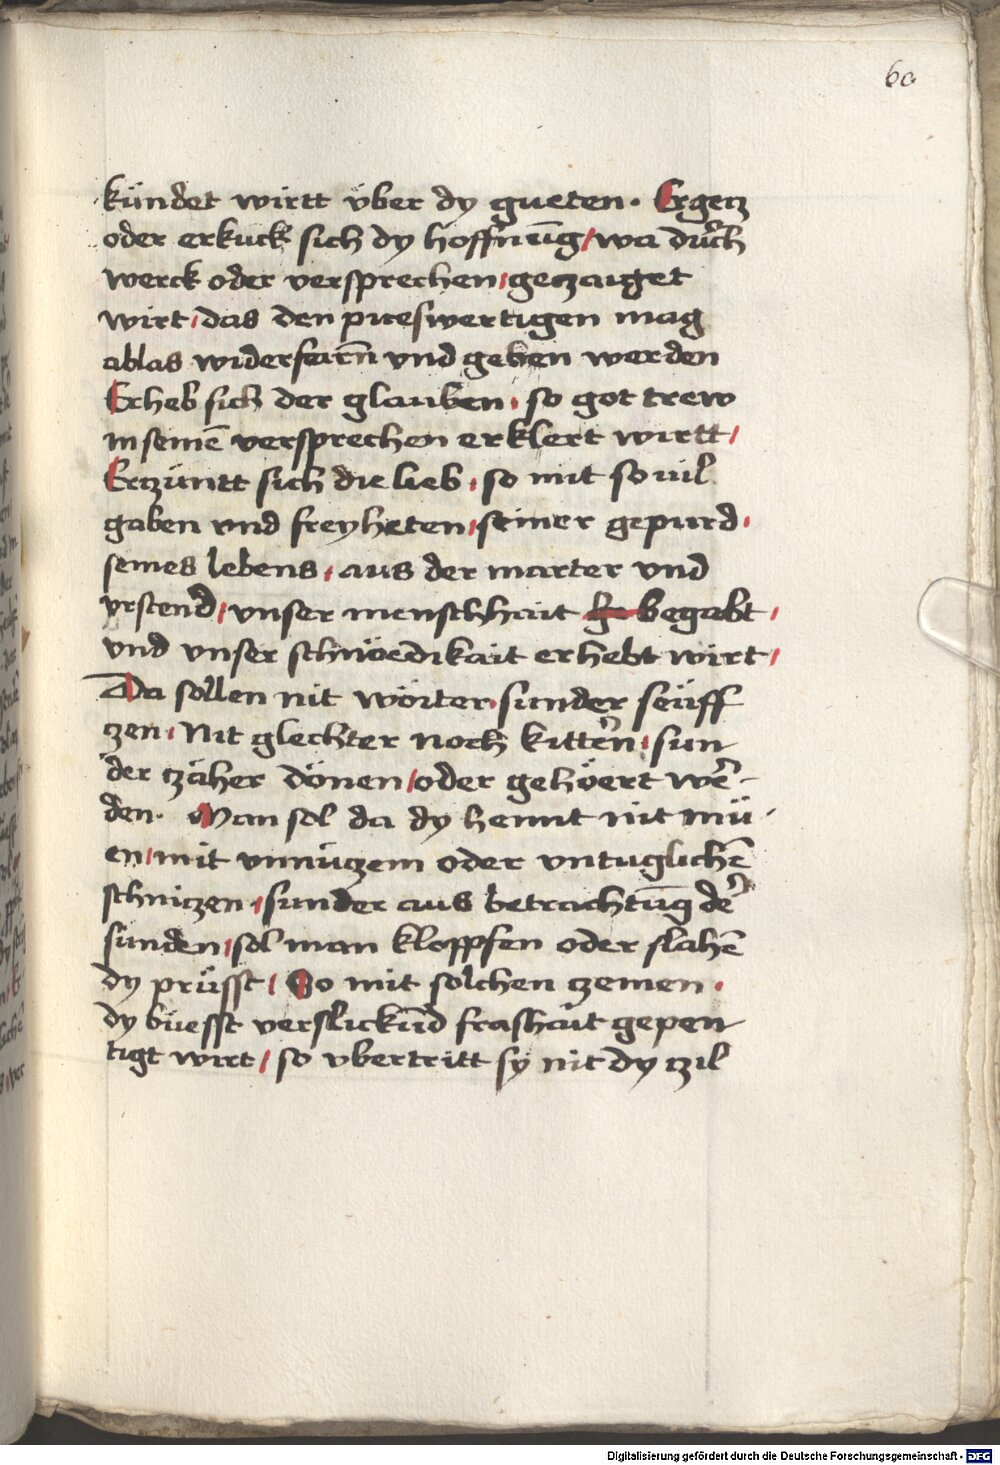 60
kündet wirtt über dy gueten. Ergetz
oder erkuck sich dy hoffnūg / wa dürch
werck oder versprechen / geczaiget
wirt / das den pueswertigen mag
ablas widerfarn̄ vnd geben werden
Erheb sich der glauben / so got trew
in seinē versprechen erklert wirtt /
Erczüntt sich die lieb / so mit so uil
gaben vnd freyheten / seiner gepurd /
seines lebens / aus der marter vnd
vrstend / vnser menschhait begabt /
vnd vnser schnöedikait erhebt wirt /
Da sollen nit wörter sunder seüff
czen / Nit glechter noch kittern̄ / sun
der czäher dönen / oder gehöert wē-
den. Man sol da dy hennt nit mü-
en / mit vnnüczem oder vntuglichē
schniczen / sunder aus betrachtūg dē
sünden / sol man kloppfen oder slahē
dy prüsst / So mit solchen czemen.
dy büesst verslickūd frashait gepen
tigt wirt / so vbertritt sy nit dy czil
Digitalisierung gefördert durch die Deutsche Forschungsgemeinschaft - DFG